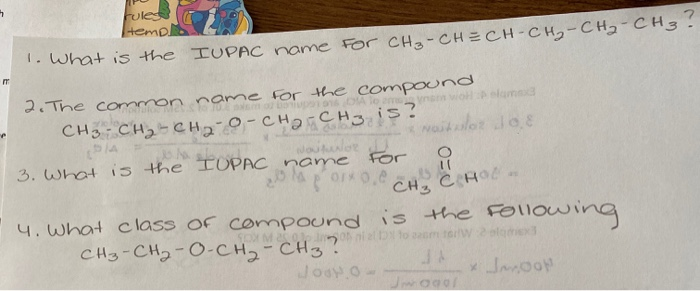 rules
temp
1. What is the IUPAC name for CH₃-CH≡CH-CH₂-CH₂-CH₃?
2. The common name for the compound
CH₃-CH₂-CH₂-O-CH₂-CH₃ is?
3. What is the IUPAC name for O
||
CH₃ C H
4. What class of compound is the following
CH₃-CH₂-O-CH₂-CH₃?